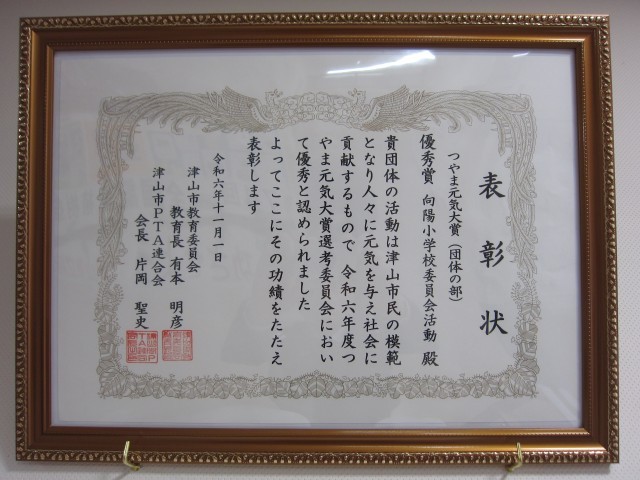 表彰状
つやま元気大賞（団体の部）
優秀賞 向陽小学校委員会活動 殿
貴団体の活動は津山市民の模範
となり人々に元気を与え社会に
貢献するもので 令和六年度つ
やま元気大賞選考委員会におい
て優秀と認められました
よってここにその功績をたたえ
表彰します
令和六年十一月一日
津山市教育委員会
教育長 有本 明彦
津山市PTA連合会
会長 片岡 聖史